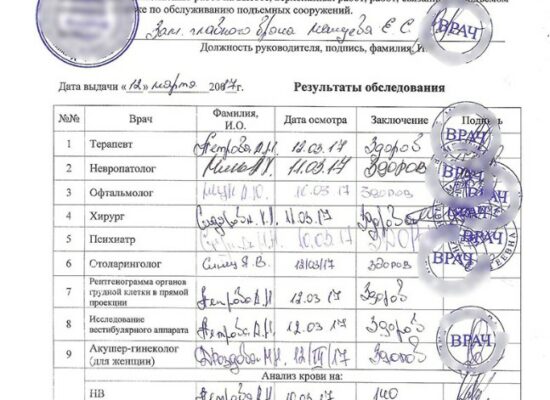 же по обслуживанию подъемных сооружений.
Зам. главного врача Е. С. ВРАЧ
Должность руководителя, подпись, фамилия, И.
Дата выдачи «12» марта 2017г. Результаты обследования
№№ Врач Фамилия, И.О. Дата осмотра Заключение Подпись
1 Терапевт Петрова А.Н. 12.03.17 Здоров ВРАЧ
2 Невропатолог 11.03.17 Здоров ВРАЧ
3 Офтальмолог 10.03.17 Здоров ВРАЧ
4 Хирург 11.03.17 Здоров
5 Психиатр 10.03.17 ВРАЧ
6 Отоларинголог 12/03/17 Здоров ВРАЧ
7 Рентгенограмма органов грудной клетки в прямой проекции Петрова А.Н. 12.03.17 Здоров
8 Исследование вестибулярного аппарата Петрова А.Н. 12.03.17 Здоров
9 Акушер-гинсколог (для женщин) Дроздова М.Н. 12/III/17 Здоров ВРАЧ
Анализ крови на:
НВ Петрова А.Н. 10.03.17 140